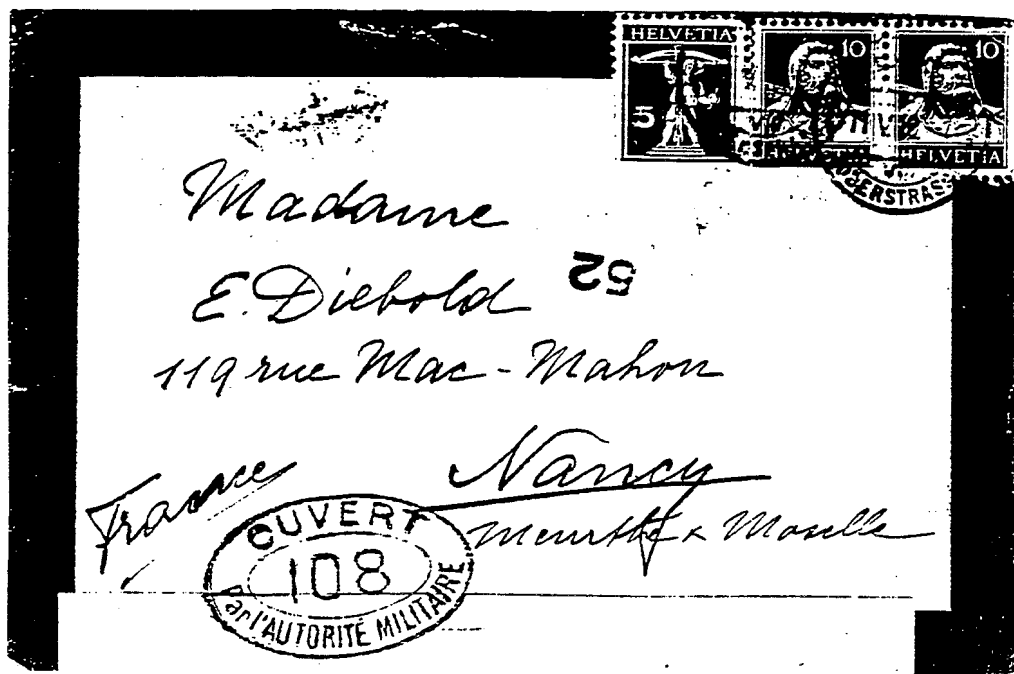 HELVETIA
5
10
HELVETIA
10
HELVETIA
Madame
E. Diebold
52
119 rue Mac-Mahon
Nancy
France
Meurthe & Moselle
OUVERT
108
Par l'AUTORITÉ MILITAIRE